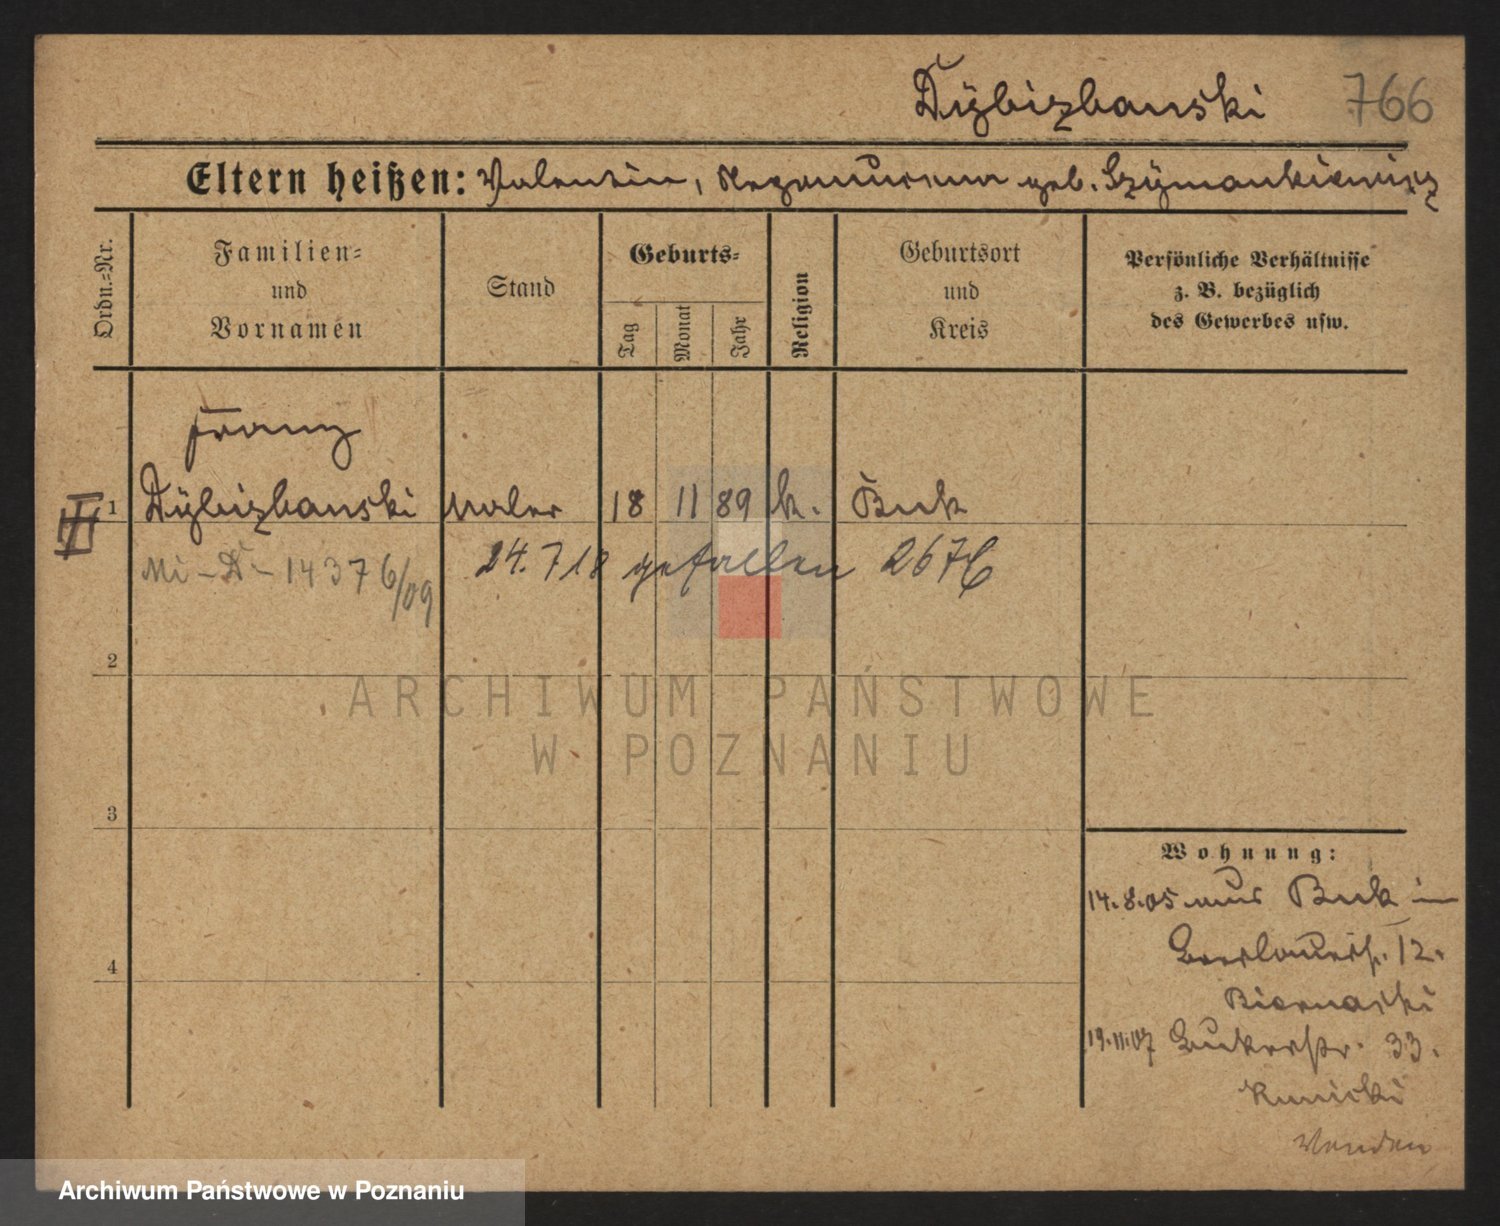 Dÿbizbanski 766
Eltern heißen: Valentin, Nepomucena geb. Szÿmankiewicz
Ordn.=Nr.
Familien=
und
Vornamen
Stand
Geburts=
Tag
Monat
Jahr
Religion
Geburtsort
und
Kreis
Persönliche Verhältnisse
z. B. bezüglich
des Gewerbes usw.
Franz
1 Dÿbizbanski Maler 18 11 89 k. Buk
Mi - D - 14376/09 24.7 18 gefallen 267
2
ARCHIWUM PAŃSTWOWE
W POZNANIU
3
Wohnung:
14.8.05 aus Buk in
12.
4
Biernaski
19.11.07 33.
Kunicki
Archiwum Państwowe w Poznaniu